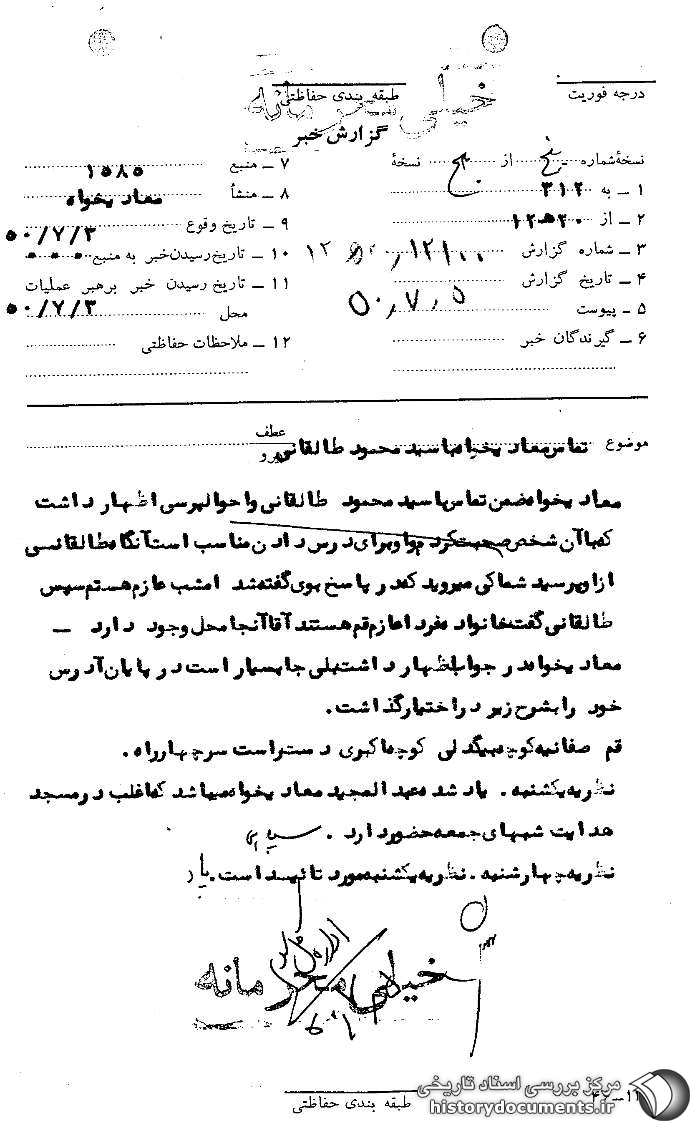 خیلی محرمانه
درجه فوریت
طبقه بندی حفاظتی
گزارش خبر
نسخهٔ شماره از نسخهٔ
۱ ــ به ۳۱۲
۲ ــ از ۲۰ ه ۱۲
۳ ــ شماره گزارش
۴ ــ تاریخ گزارش ۵۰٫۷٫۵
۵ ــ پیوست
۶ ــ گیرندگان خبر
۷ ــ منبع ۱۵۸۵
۸ ــ منشأ معادیخواه
۹ ــ تاریخ وقوع ۵۰/۷/۳
۱۰ ــ تاریخ رسیدن خبر به منبع
۱۱ ــ تاریخ رسیدن خبر برهبر عملیات
محل ۵۰/۷/۳
۱۲ ــ ملاحظات حفاظتی
عطف
موضوع تماس معادیخواه با سید محمود طالقانی
پیرو
معادیخواه ضمن تماس با سید محمود طالقانی و احوالپرسی اظهار داشت
که با آن شخص صحبت کردم و او برای درس دادن مناسب است آنگاه طالقانی
از او پرسید شما کی میروید که در پاسخ بوی گفته شد امشب عازم هستم سپس
طالقانی گفت خانواده فردا عازم قم هستند آقا آنجا محل وجود دارد ــ
معادیخواه در جواب اظهار داشت بلی جا بسیار است در پایان آدرس
خود را بشرح زیر در اختیار گذاشت.
قم صفائیه کوچه بیگدلی کوچه اکبری دست راست سر چهارراه.
نظریه یکشنبه. یاد شده عبدالمجید معادیخواه میباشد که اغلب در مسجد
هدایت شبهای جمعه حضور دارد.
نظریه چهارشنبه. نظریه یکشنبه مورد تائید است.
خیلی محرمانه
طبقه بندی حفاظتی
مرکز بررسی اسناد تاریخی
historydocuments.ir